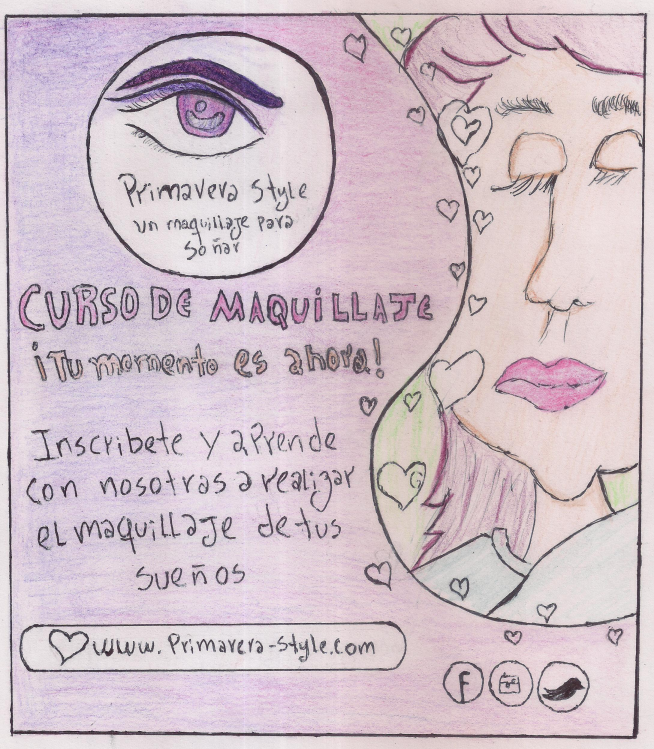 Primavera Style
un maquillaje para
soñar
CURSO DE MAQUILLAJE
¡Tu momento es ahora!
Inscribete y aprende
con nosotras a realizar
el maquillaje de tus
sueños
www.Primavera-Style.com
f